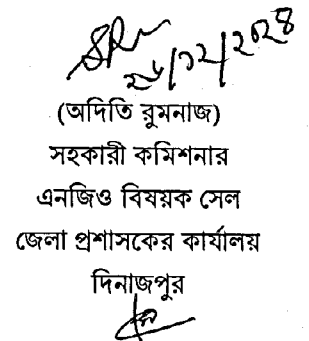 ২৬/১২/২০২৪
(অদিতি রুমনাজ)
সহকারী কমিশনার
এনজিও বিষয়ক সেল
জেলা প্রশাসকের কার্যালয়
দিনাজপুর